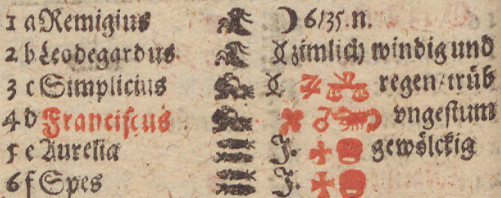 1 a Remigius ☽ 6/35. n.
2 b Leodegardus zimlich windig und
3 c Simplicius regen/trüb
4 d Franciscus vngestum
5 e Aurelia J. gewölckig
6 f Spes J.